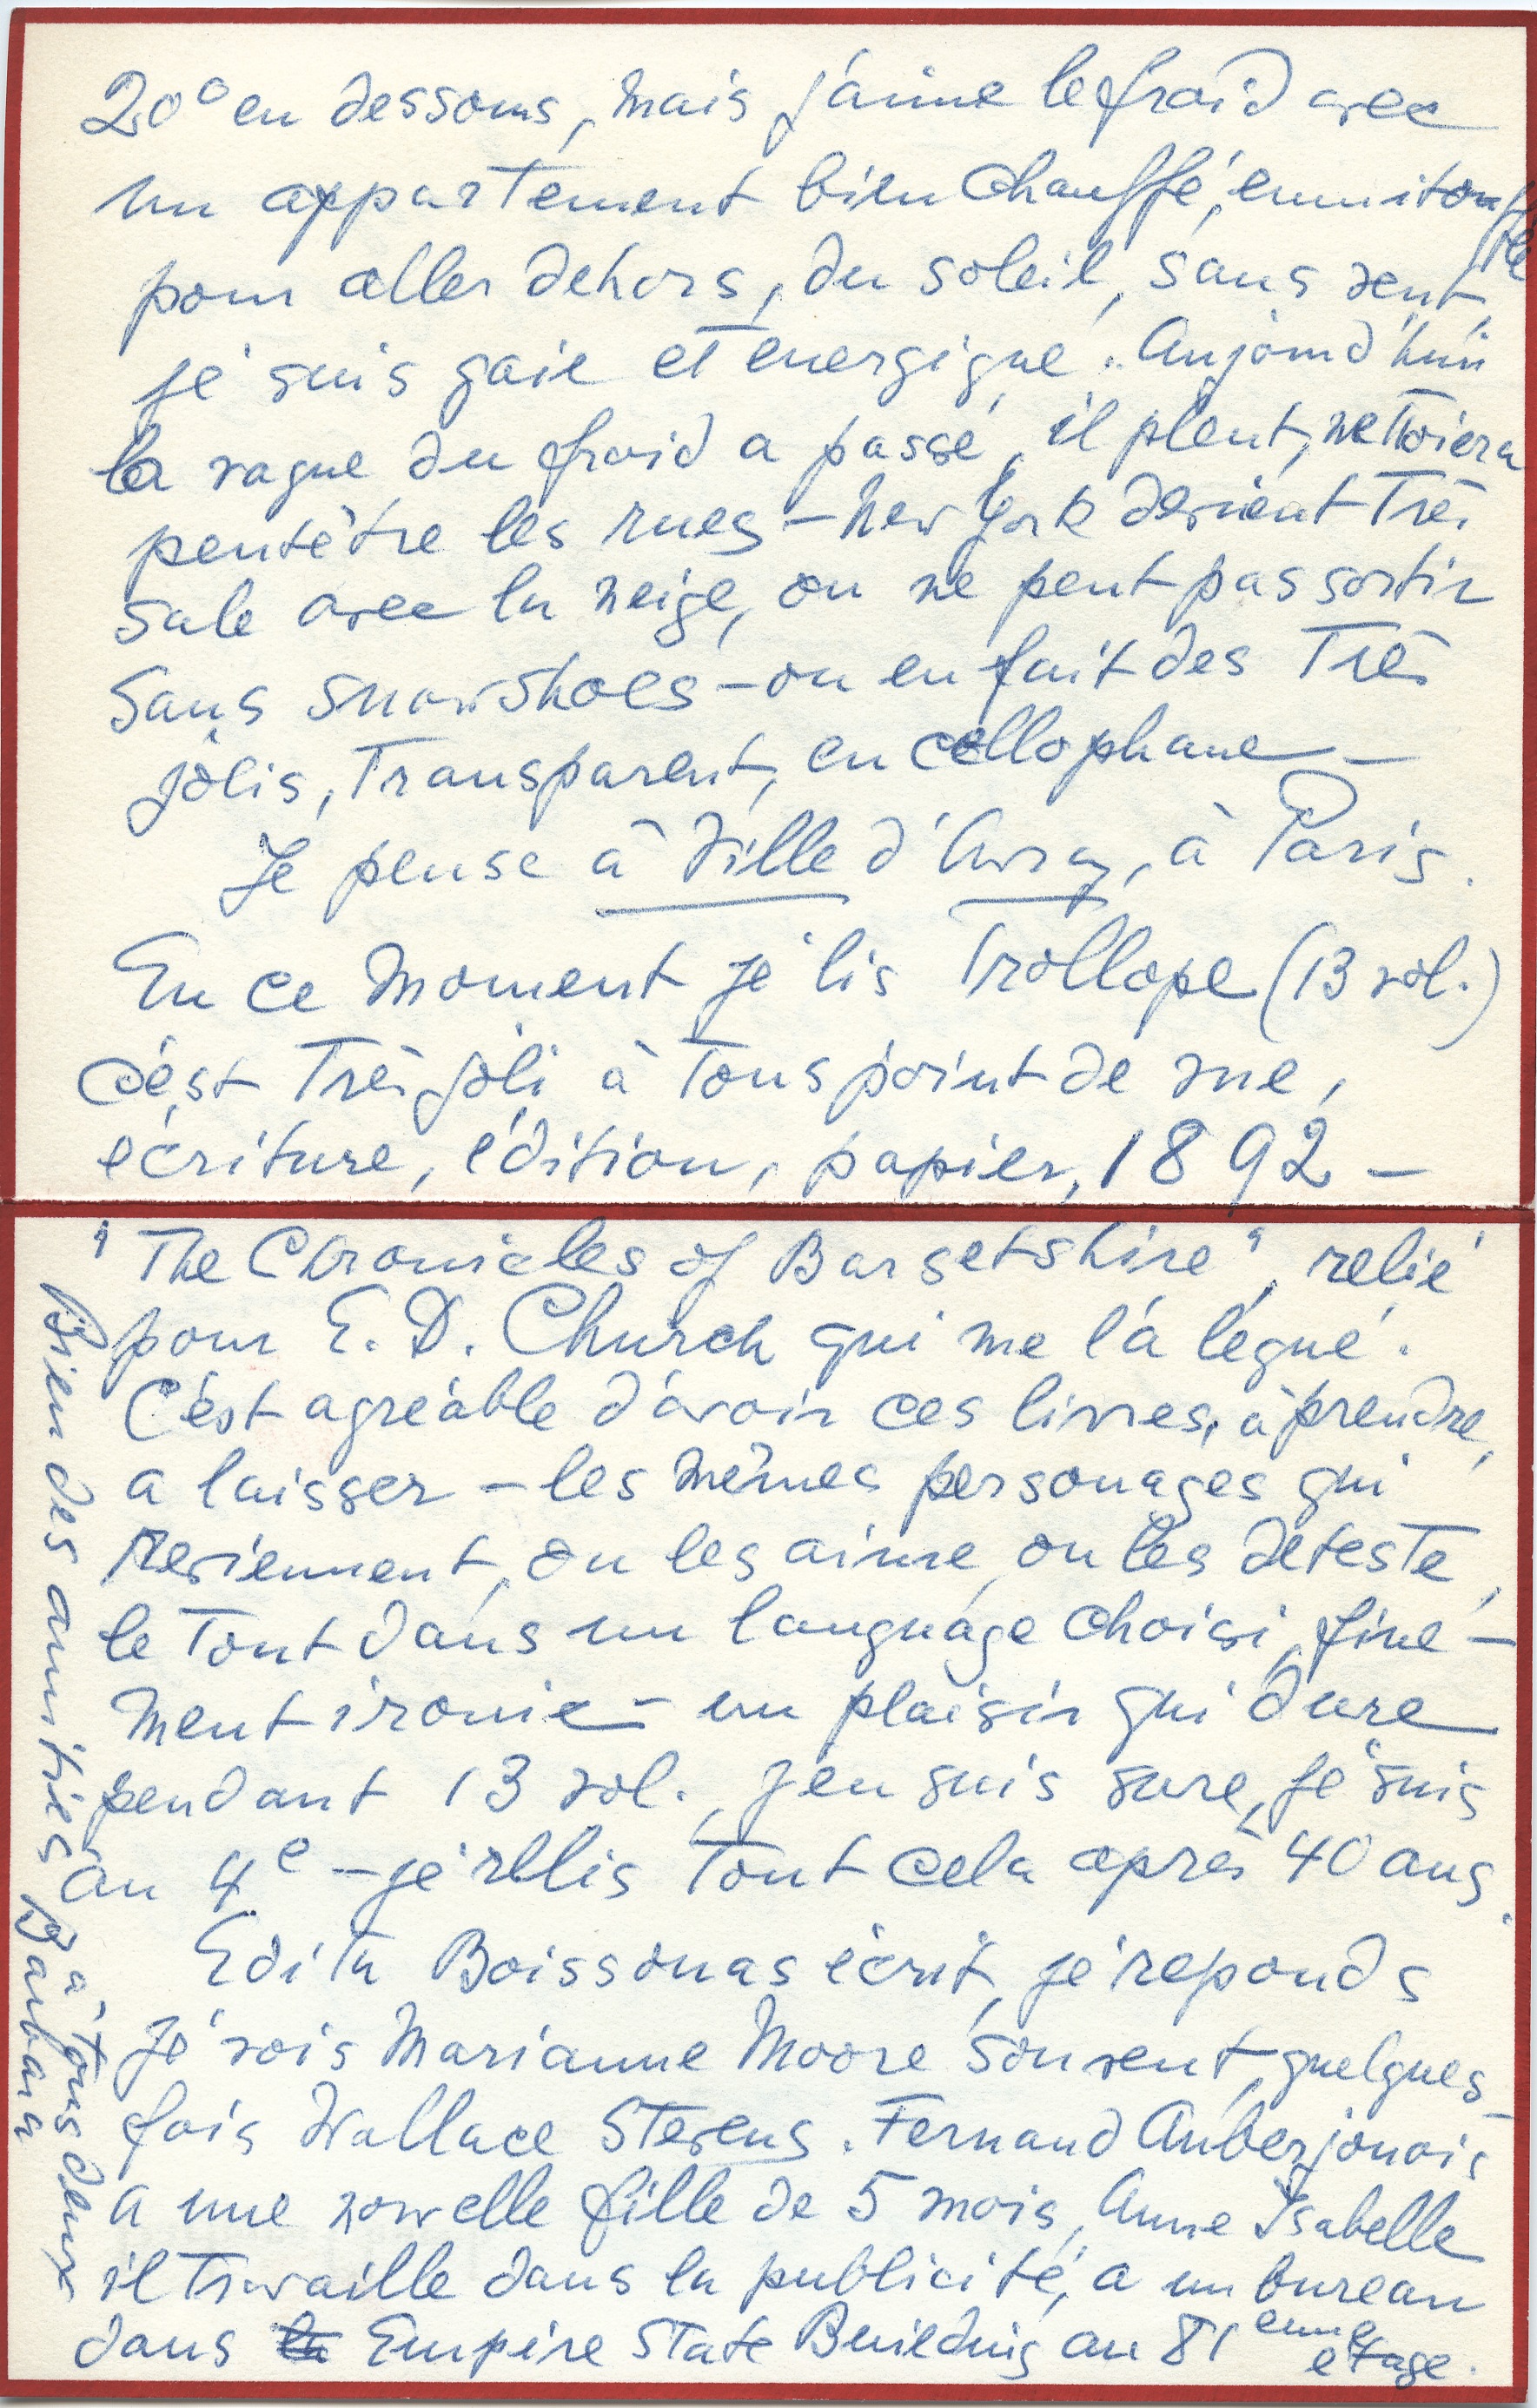 20° en dessous, mais j'aime le froid avec
un appartement bien chauffé, emmitouflée
pour aller dehors, du soleil, sans vent,
je suis gaie et énergique. Aujourd'hui
la vague du froid a passé, il pleut, nettoiera
peutêtre les rues – New York devient très
sale avec la neige, on ne peut pas sortir
sans snowshoes – on en fait des très
jolis, transparent, en cellophane –
Je pense à Ville d'Avray, à Paris.
En ce moment je lis Trollope (13 vol.)
c'est très joli à tous point de vue,
écriture, édition, papier, 1892 –
"The Chronicles of Barsetshire", relié
pour E. D. Church qui me l'a légué.
C'est agréable d'avoir ces livres, à prendre,
a laisser – les mêmes personages qui
reviennent, on les aime, on les déteste,
le tout dans un language choisi, fine-
ment ironie – un plaisir qui dure
pendant 13 vol., j'en suis sure, je suis
au 4e – je relis tout cela après 40 ans.
Edita Boissonas écrit, je réponds
Je vois Marianne Moore souvent, quelques-
fois Wallace Stevens. Fernand Auberjonois
a une nouvelle fille de 5 mois, Anne Isabelle
il travaille dans la publicité, a un bureau
dans la Empire State Building au 81eme
etage.
Bien des amitiés à tous deux
Barbara